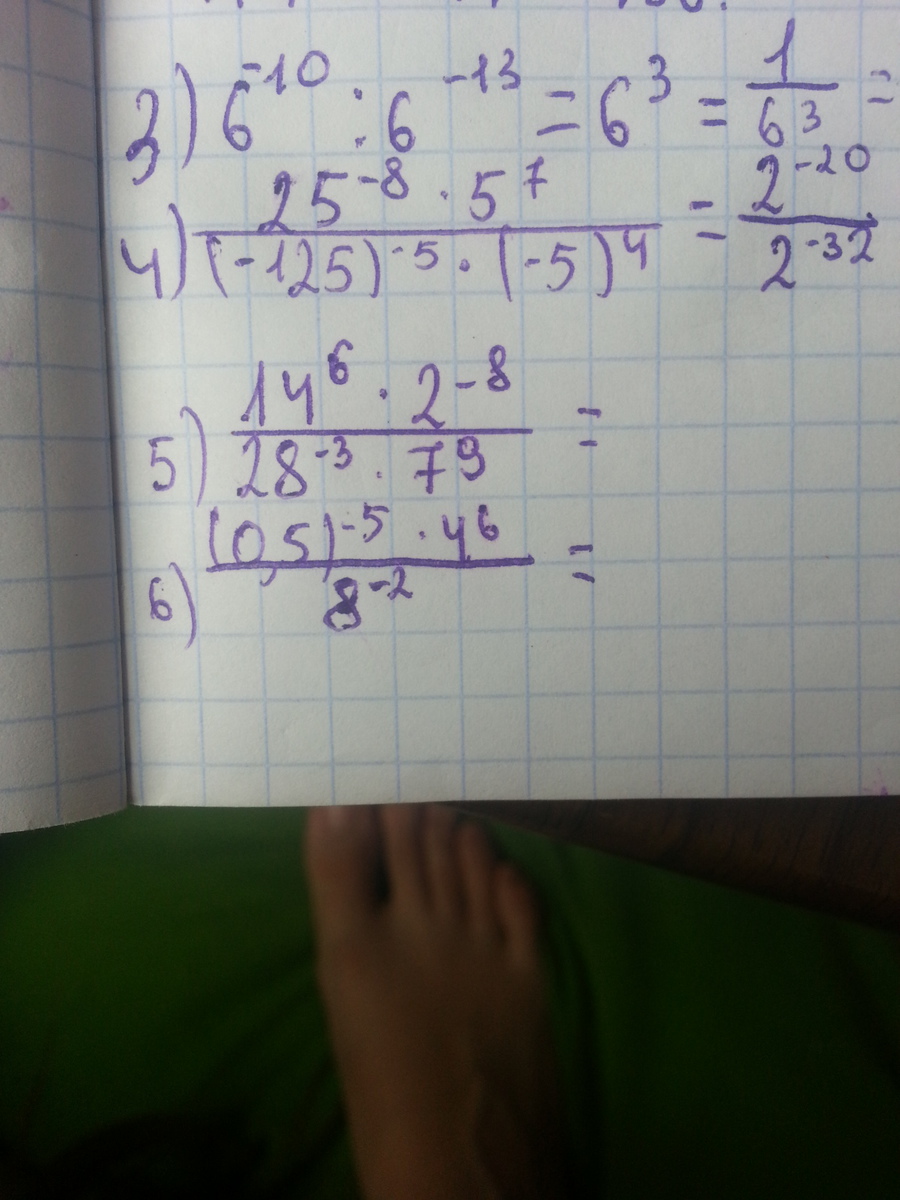 3) 6^-10 : 6^-13 = 6^3 = 1/6^3 =
4) (25^-8 · 5^7)/((-125)^-5 · (-5)^4) = 2^-20/2^-32
5) (14^6 · 2^-8)/(28^-3 · 7^9) =
6) ((0,5)^-5 · 4^6)/8^-2 =